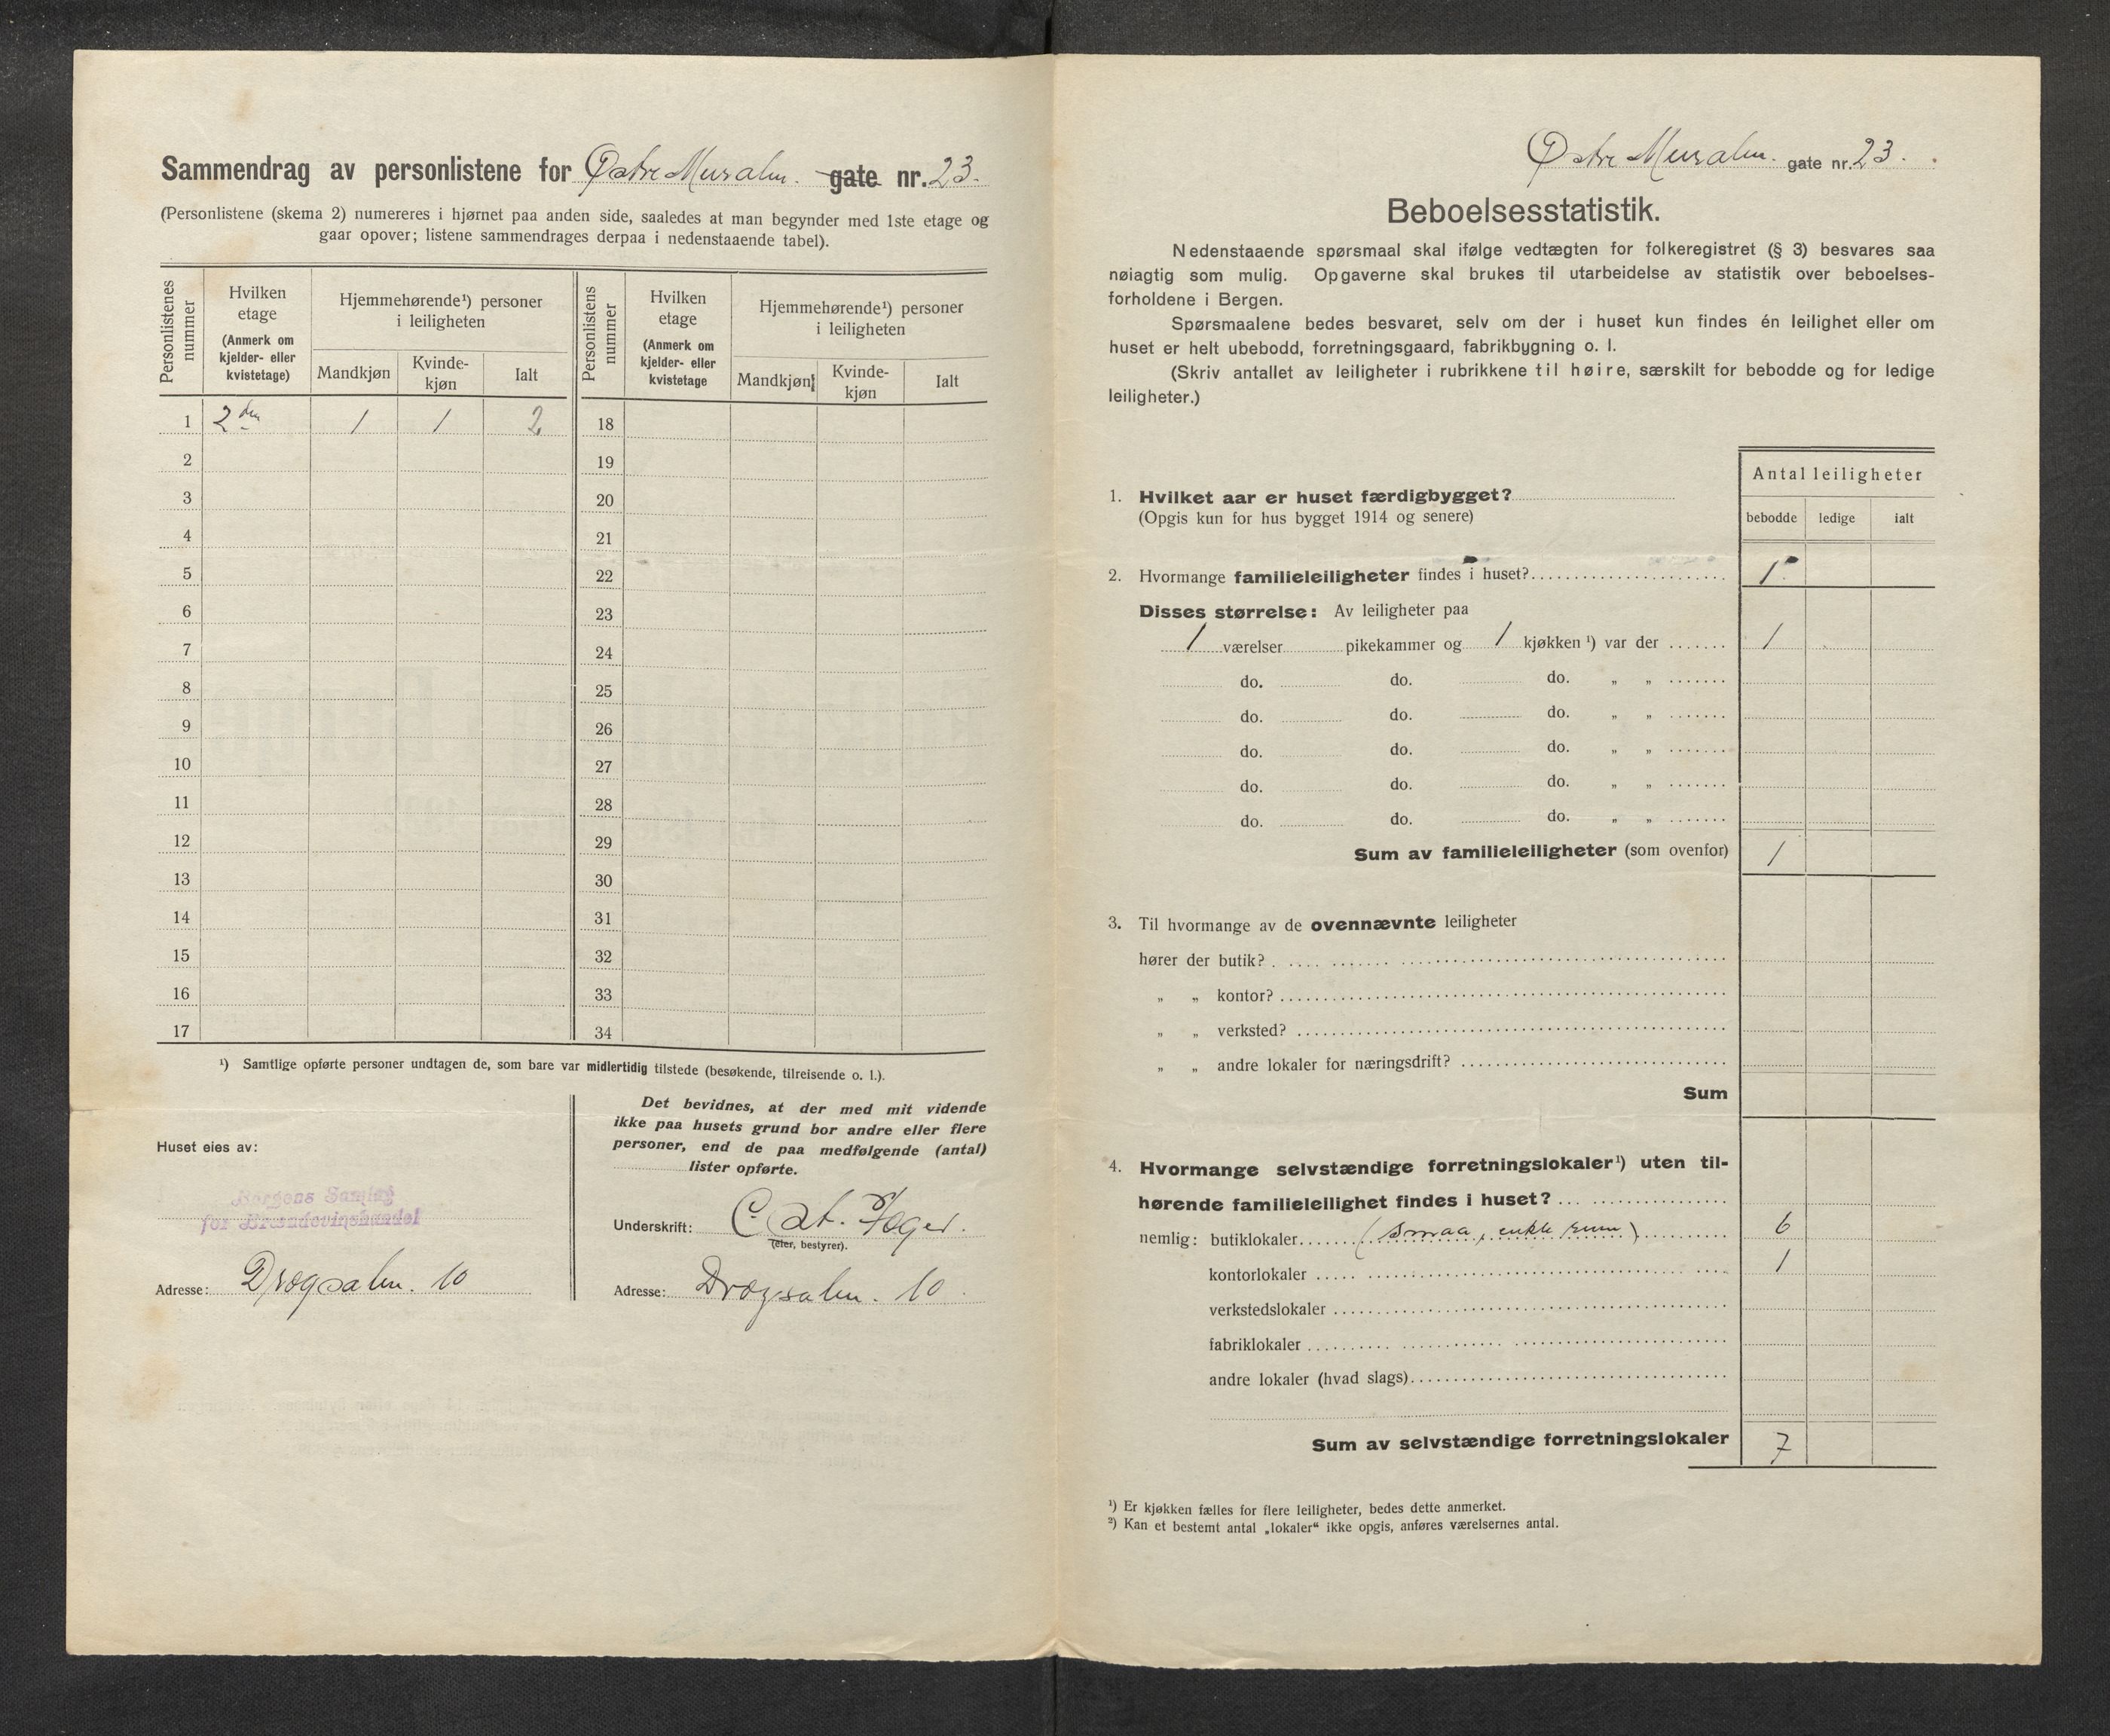 Sammendrag av personlistene for Østre Muralm. gate nr. 23.
(Personlistene (skema 2) numereres i hjørnet paa anden side, saaledes at man begynder med 1ste etage og
gaar opover; listene sammendrages derpaa i nedenstaaende tabel).
Personlistenes nummer
Hvilken etage (Anmerk om kjelder- eller kvistetage)
Hjemmehørende¹) personer i leiligheten
Mandkjøn
Kvindekjøn
Ialt
Personlistens nummer
Hvilken etage (Anmerk om kjelder- eller kvistetage
Hjemmehørende¹) personer i leiligheten
Mandkjøn
Kvindekjøn
Ialt
1 2den 1 1 2 18
2 19
3 20
4 21
5 22
6 23
7 24
8 25
9 26
10 27
11 28
12 29
13 30
14 31
15 32
16 33
17 34
¹) Samtlige opførte personer undtagen de, som bare var midlertidig tilstede (besøkende, tilreisende o. l.).
Huset eies av:
Bergens Samlag
for Brændevinshandel
Adresse: Drægsalm. 10
Det bevidnes, at der med mit vidende
ikke paa husets grund bor andre eller flere
personer, end de paa medfølgende (antal)
lister opførte.
Underskrift:
(eier, bestyrer).
Adresse: Drægsalm. 10
Østre Muralm. gate nr. 23.
Beboelsesstatistik.
Nedenstaaende spørsmaal skal ifølge vedtægten for folkeregistret (§ 3) besvares saa
nøiagtig som mulig. Opgaverne skal brukes til utarbeidelse av statistik over beboelses-
forholdene i Bergen.
Spørsmaalene bedes besvaret, selv om der i huset kun findes én leilighet eller om
huset er helt ubebodd, forretningsgaard, fabrikbygning o. l.
(Skriv antallet av leiligheter i rubrikkene til høire, særskilt for bebodde og for ledige
leiligheter.)
Antal leiligheter
bebodde ledige ialt
1. Hvilket aar er huset færdigbygget?
(Opgis kun for hus bygget 1914 og senere)
2. Hvormange familieleiligheter findes i huset? 1
Disses størrelse: Av leiligheter paa
1 værelser pikekammer og 1 kjøkken ¹) var der 1
do. do. do. „ „
do. do. do. „ „
do. do. do. „ „
do. do. do. „ „
do. do. do. „ „
Sum av familieleiligheter (som ovenfor) 1
3. Til hvormange av de ovennævnte leiligheter
hører der butik?
„ „ kontor?
„ „ verksted?
„ „ andre lokaler for næringsdrift?
Sum
4. Hvormange selvstændige forretningslokaler¹) uten til-
hørende familieleilighet findes i huset?
nemlig: butiklokaler (smaa, enkle rum) 6
kontorlokaler 1
verkstedslokaler
fabriklokaler
andre lokaler (hvad slags)
Sum av selvstændige forretningslokaler 7
¹) Er kjøkken fælles for flere leiligheter, bedes dette anmerket.
²) Kan et bestemt antal „lokaler“ ikke opgis, anføres værelsernes antal.